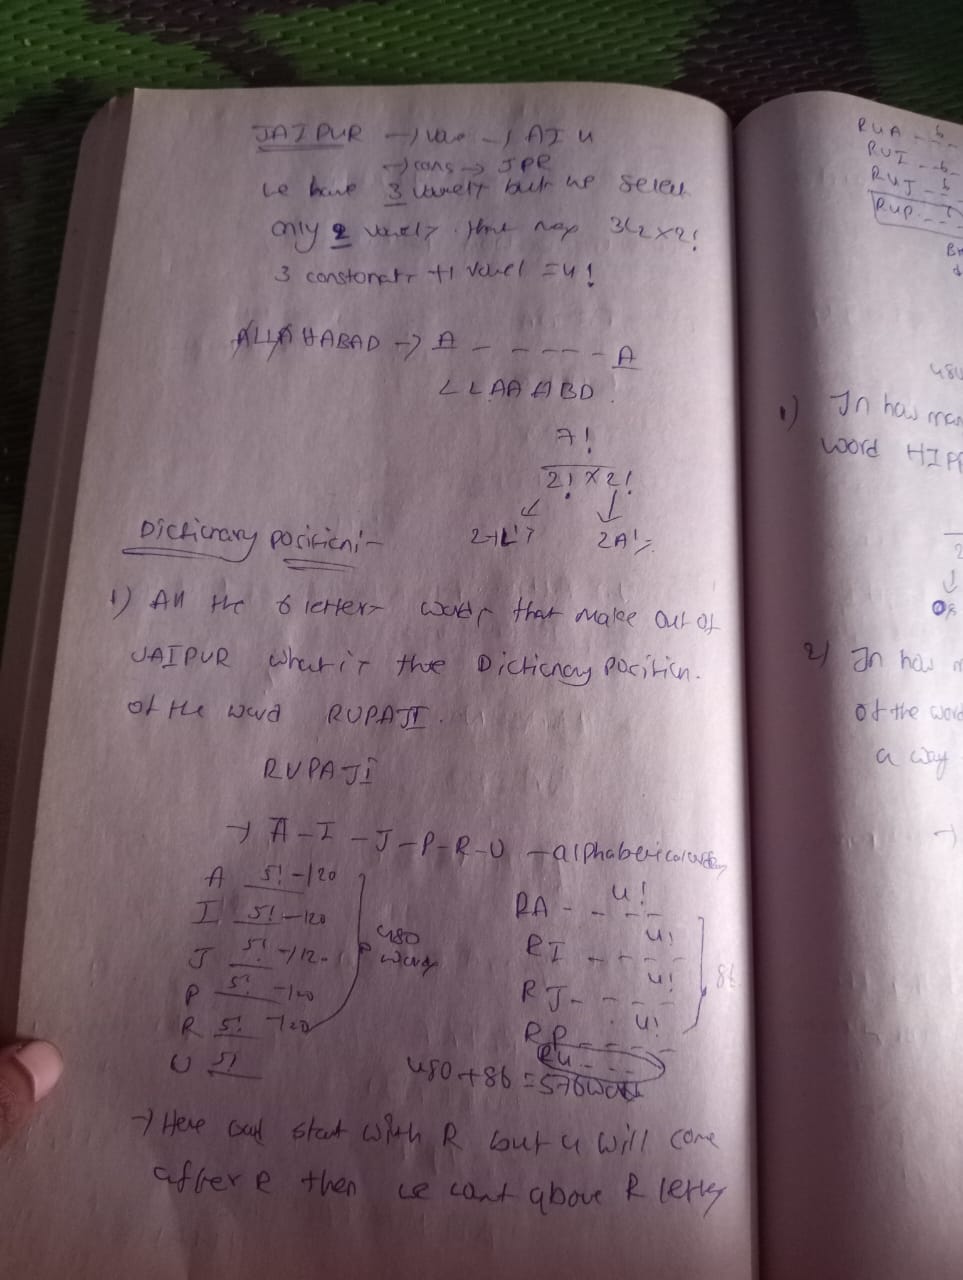 JAIPUR → vow → AI U
→ cons → JPR
we have 3 vowels but we select
only 2 vowels. that
3 constonats +1 vowel = 4!
ALLAHABAD → A - - - - - A
L L AA H BD
7!
2! x 2!
2-L's 2A's
Dictionary position:-
1) All the 6 letters words that make out of
JAIPUR what is the Dictionay position.
of the word RUPAJI.
RUPAJI
→ A-I-J-P-R-U → alphabetical order
A 5! -120
I 5! -120
J 5! -120
P 5! -120
R 5! 720
U 5!
480
words
RA - - - - 4!
RI - - - - 4!
RJ - - - - 4!
RP - - - - 4!
RU - - - -
86
480+86 = 576 words
→ Here start with R but u will come
after R then we cant above R letters
RUA - - - 6
RUI - - - 6
RUJ - - - 6
RUP - - -
1) In how man
word HIPP
2) In how m
of the word
a way